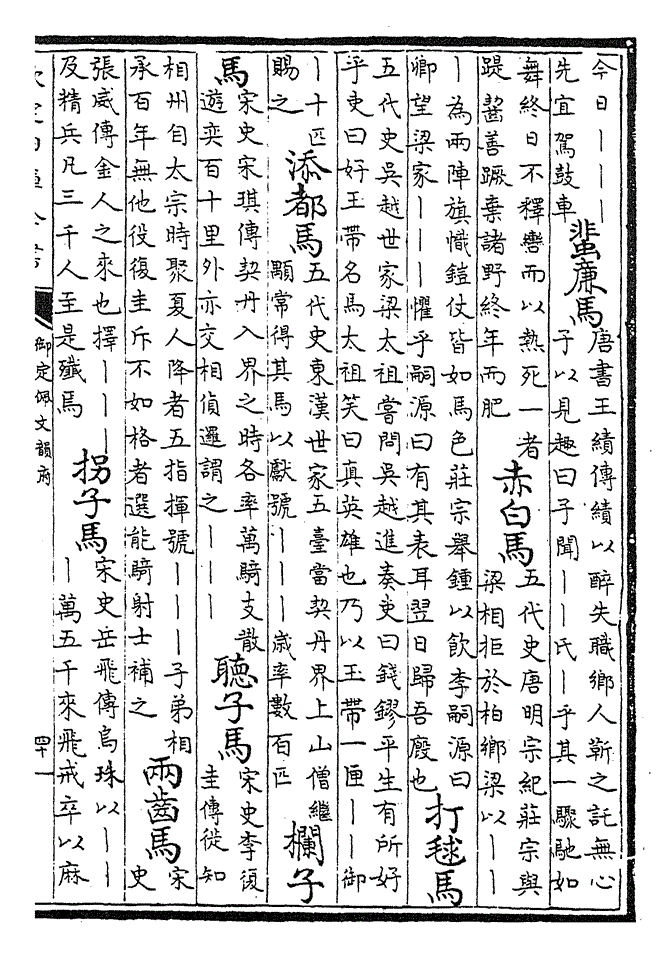 今日｜｜｜
先宜駕鼓車
蜚廉馬
唐書王績傳績以醉失職鄉人靳之託無心
子以見趣曰子聞｜｜氏｜乎其一驟馳如
舞終日不釋轡而以熱死一者
踶齧善蹶棄諸野終年而肥
赤白馬
五代史唐明宗紀莊宗與
梁相拒於柏鄉梁以｜｜
｜為兩陣旗幟鎧仗皆如馬色莊宗舉鍾以飲李嗣源曰
卿望梁家｜｜｜懼乎嗣源曰有其表耳翌日歸吾廄也
打毬馬
五代史吳越世家梁太祖嘗問吳越進奏吏曰錢鏐平生有所好
乎吏曰好玉帶名馬太祖笑曰真英雄也乃以玉帶一匣｜｜御
｜十匹
賜之
添都馬
五代史東漢世家五臺當契丹界上山僧繼
顒常得其馬以獻號｜｜｜歲率數百匹
欄子
馬
宋史宋琪傳契丹入界之時各率萬騎支散
遊奕百十里外亦交相偵邏謂之｜｜｜
聽子馬
宋史李復
圭傳徙知
相州自太宗時聚夏人降者五指揮號｜｜｜子弟相
承百年無他役復圭斥不如格者選能騎射士補之
兩齒馬
宋
史
張威傳金人之來也擇｜｜｜
及精兵凡三千人至是殲焉
拐子馬
宋史岳飛傳烏珠以｜｜
｜萬五千來飛戒卒以麻
御定佩文韻府
四十一